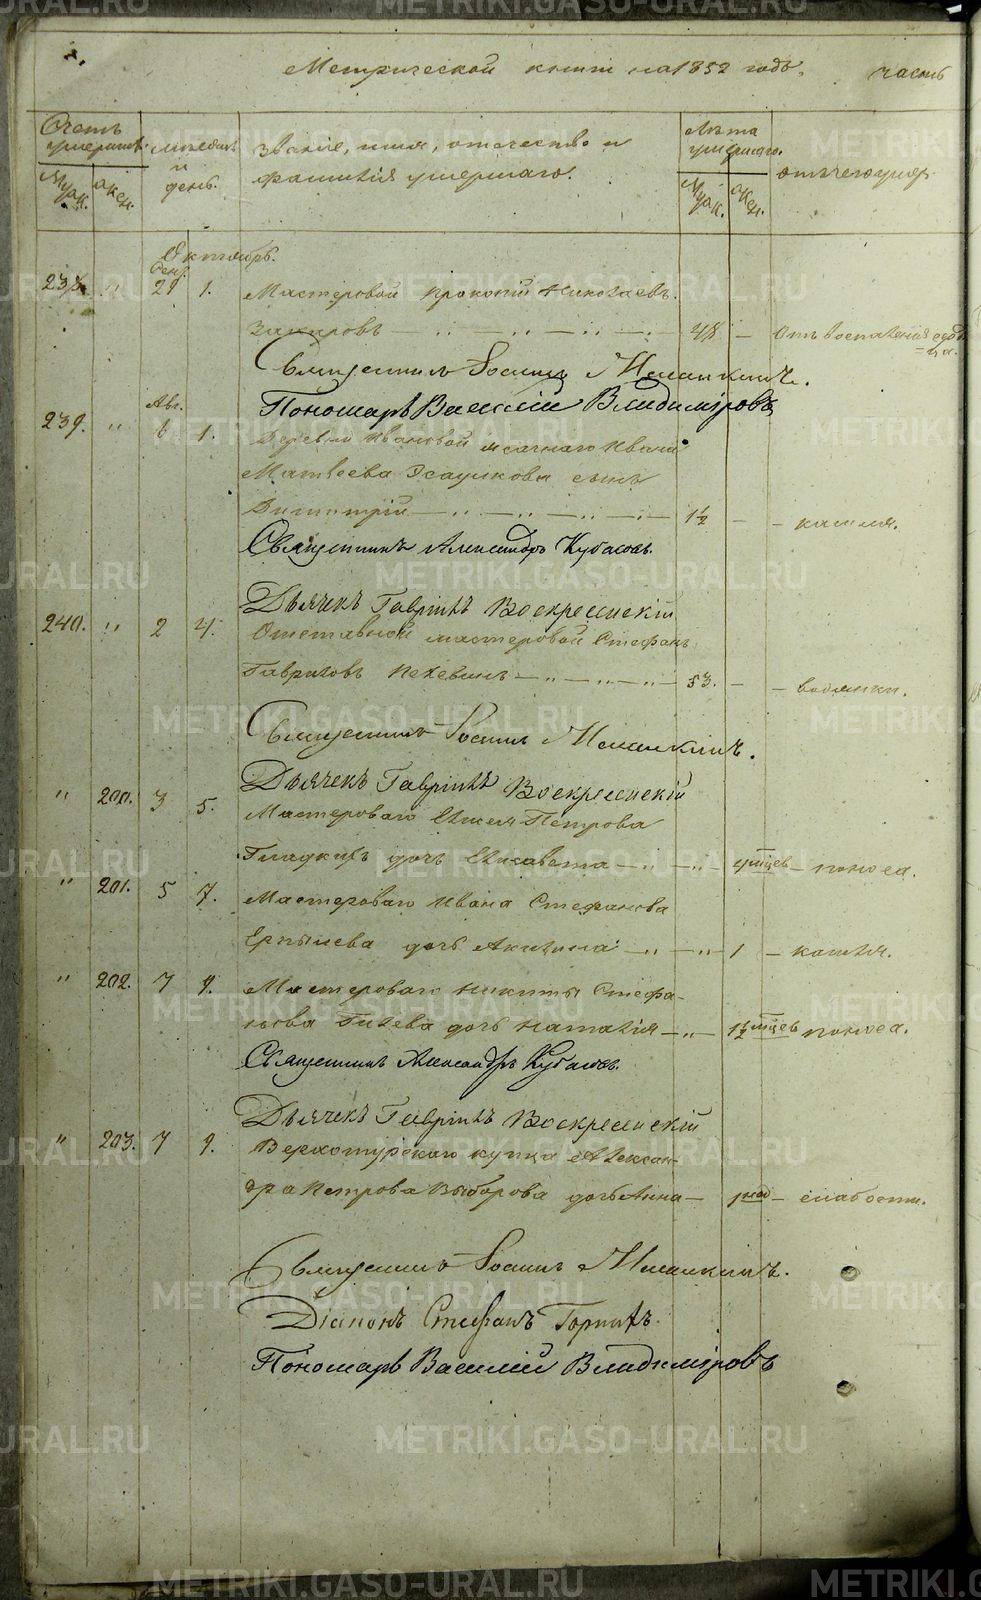 Метрической книги на 1852 годъ, часть
Счетъ умершихъ.
Муж. Жен.
Мѣсяцъ и день.
Званіе, имя, отчество и
фамилія умершаго.
Лѣта умершаго.
Муж. Жен.
Отъ чего умер.
Октябрь.
Сен.
238 " 29 1. Мастеровой Прокопій Николаевъ
— " — " — " — 48 — Отъ воспаленія
Священникъ Іоаннъ
Пономарь Василій Владиміровъ
Авг.
239. " 6 1. Деревни Ивановой Ивана
Матвеева сынъ
Димитрій — " — " — " — 1½ — — кашля.
Священникъ Александръ Кубасовъ.
Дьячекъ Гавріилъ Воскресенскій
240. " 2 4. Отставной мастеровой Стефанъ
Гавриловъ — " — " — " — 53. — — водянки.
Священникъ Іоаннъ
Дьячекъ Гавріилъ Воскресенскій
" 200. 3 5. Мастероваго Петрова
Гладкихъ дочь Елисавета — " — " — 4 мѣсяцев — поноса.
" 201. 5 7. Мастероваго Ивана Стефанова
дочь Акилина — " — " 1 — кашля.
" 202. 7 9. Мастероваго Никиты Стефа-
нова Гилева дочь Наталія — " — 1½ мѣсяцев поноса.
Священникъ Александръ Кубасовъ.
Дьячекъ Гавріилъ Воскресенскій
" 203. 7 9. Верхотурскаго купца Алексан-
дра Петрова Выборова дочь Анна — — слабости.
Священникъ Іоаннъ
Діаконъ Стефанъ
Пономарь Василій Владиміровъ
METRIKI.GASO-URAL.RU